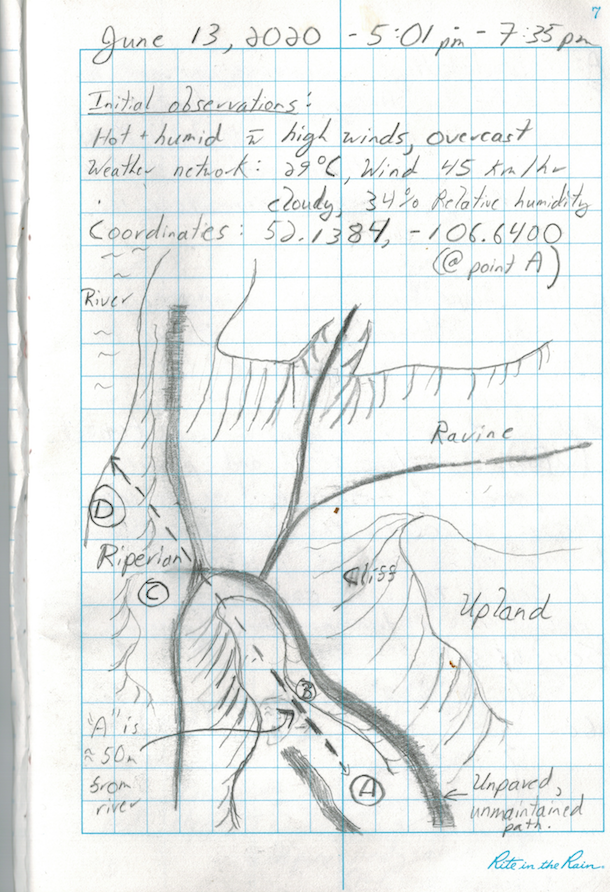 7
June 13, 2020 - 5:01 pm - 7:35 pm
Initial observations:
Hot + humid c̄ high winds, overcast
Weather network: 29°C, Wind 45 km/hr
cloudy, 34% Relative humidity
Coordinates: 52.1384, -106.6400
(@ point A)
River
Ravine
D
Riperian
Cliff
C
Upland
B
"A" is
≈ 50m
from
river
A
Unpaved,
unmaintained
path.
Rite in the Rain